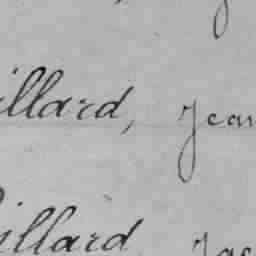 illard, Jean
illard, Jac